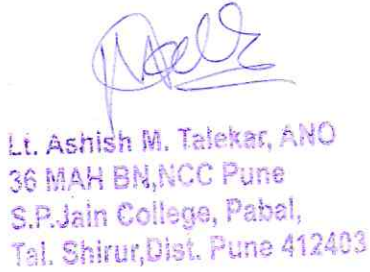 Lt. Ashish M. Talekar, ANO
36 MAH BN,NCC Pune
S.P.Jain College, Pabal,
Tal. Shirur,Dist. Pune 412403